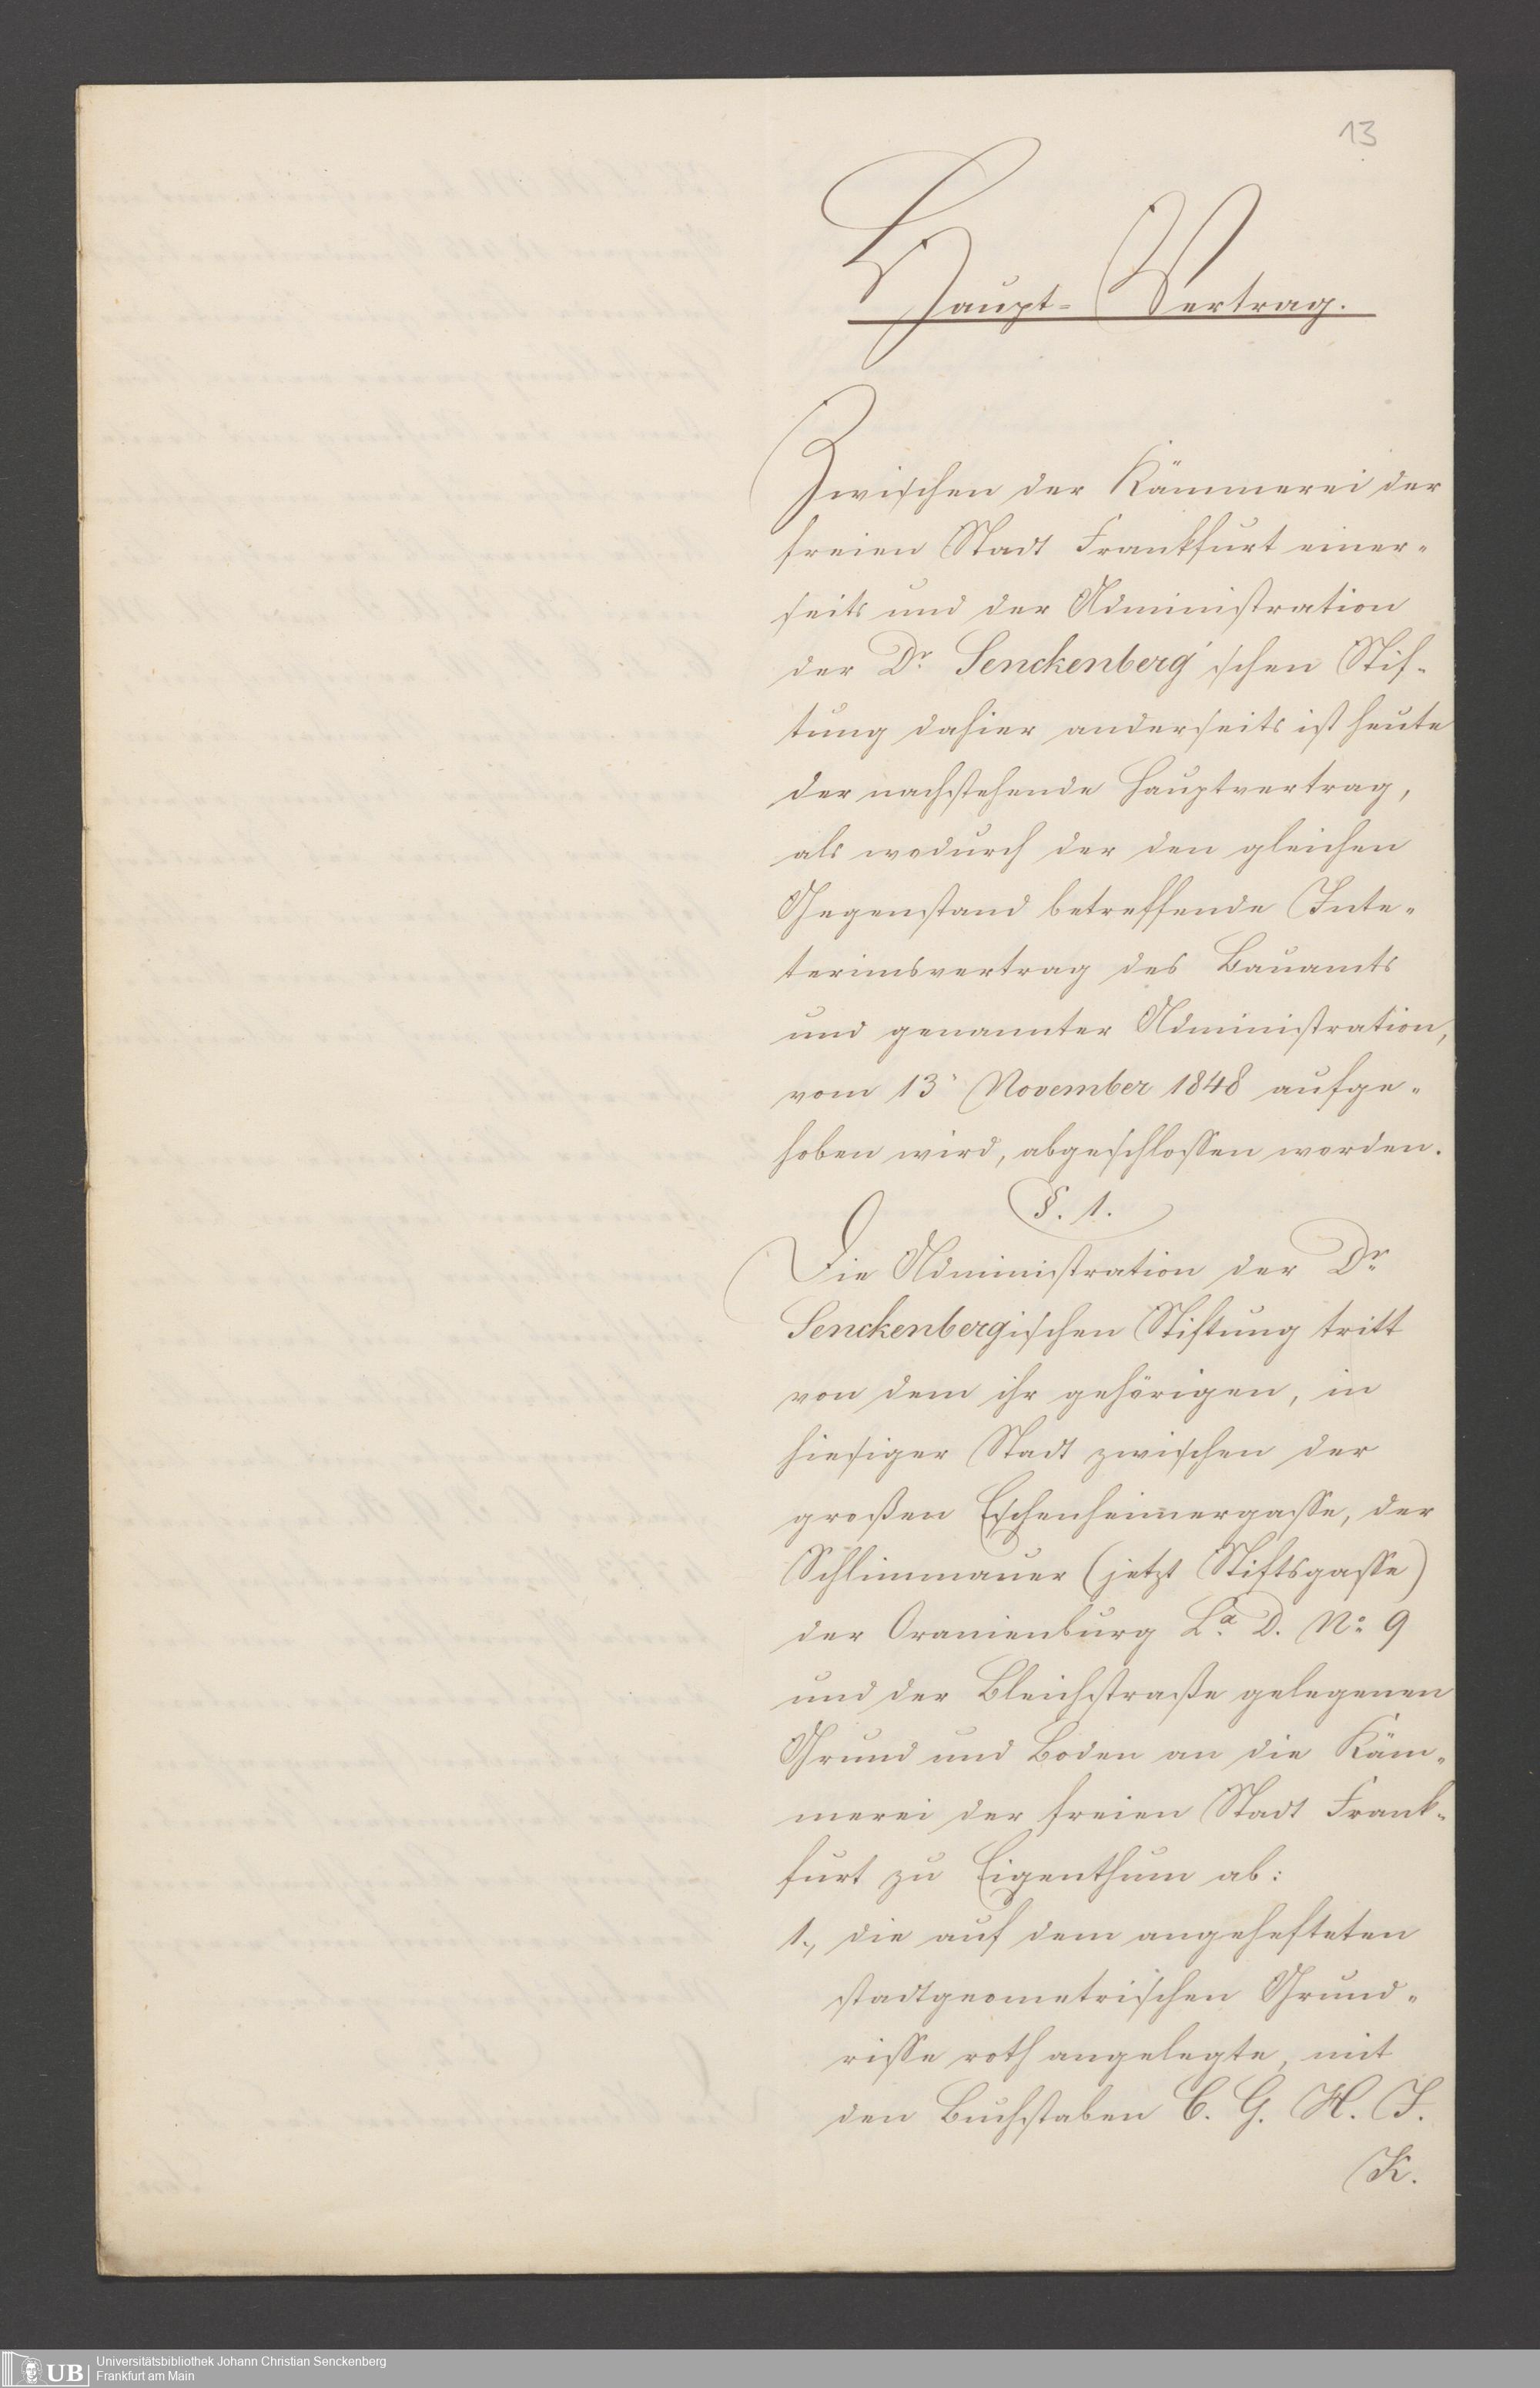 13
Haupt-Vertrag.
Zwischen der Kämmerei der
freien Stadt Frankfurt einer-
seits und der Administration
der Dr. Senckenberg'schen Stif-
tung dahier anderseits ist heute
der nachstehende Hauptvertrag,
als wodurch der den gleichen
Gegenstand betreffende Inte-
terimsvertrag des Bauamts
und genannter Administration,
vom 13. November 1848 aufge-
hoben wird, abgeschlossen worden.
§. 1.
Die Administration der Dr.
Senckenbergischen Stiftung tritt
von dem ihr gehörigen, in
hiesiger Stadt zwischen der
großen Eschenheimergasse, der
Schlimmauer (jetzt Stiftsgasse)
der Oranienburg La. D. No. 9
und der Bleichstraße gelegenen
Grund und Boden an die Käm-
merei der freien Stadt Frank-
furt zu Eigenthum ab:
1., die auf dem angehefteten
stadtgeometrischen Grund-
risse roth angelegte, mit
den Buchstaben C. G. H. J.
K.
UB Universitätsbibliothek Johann Christian Senckenberg
Frankfurt am Main